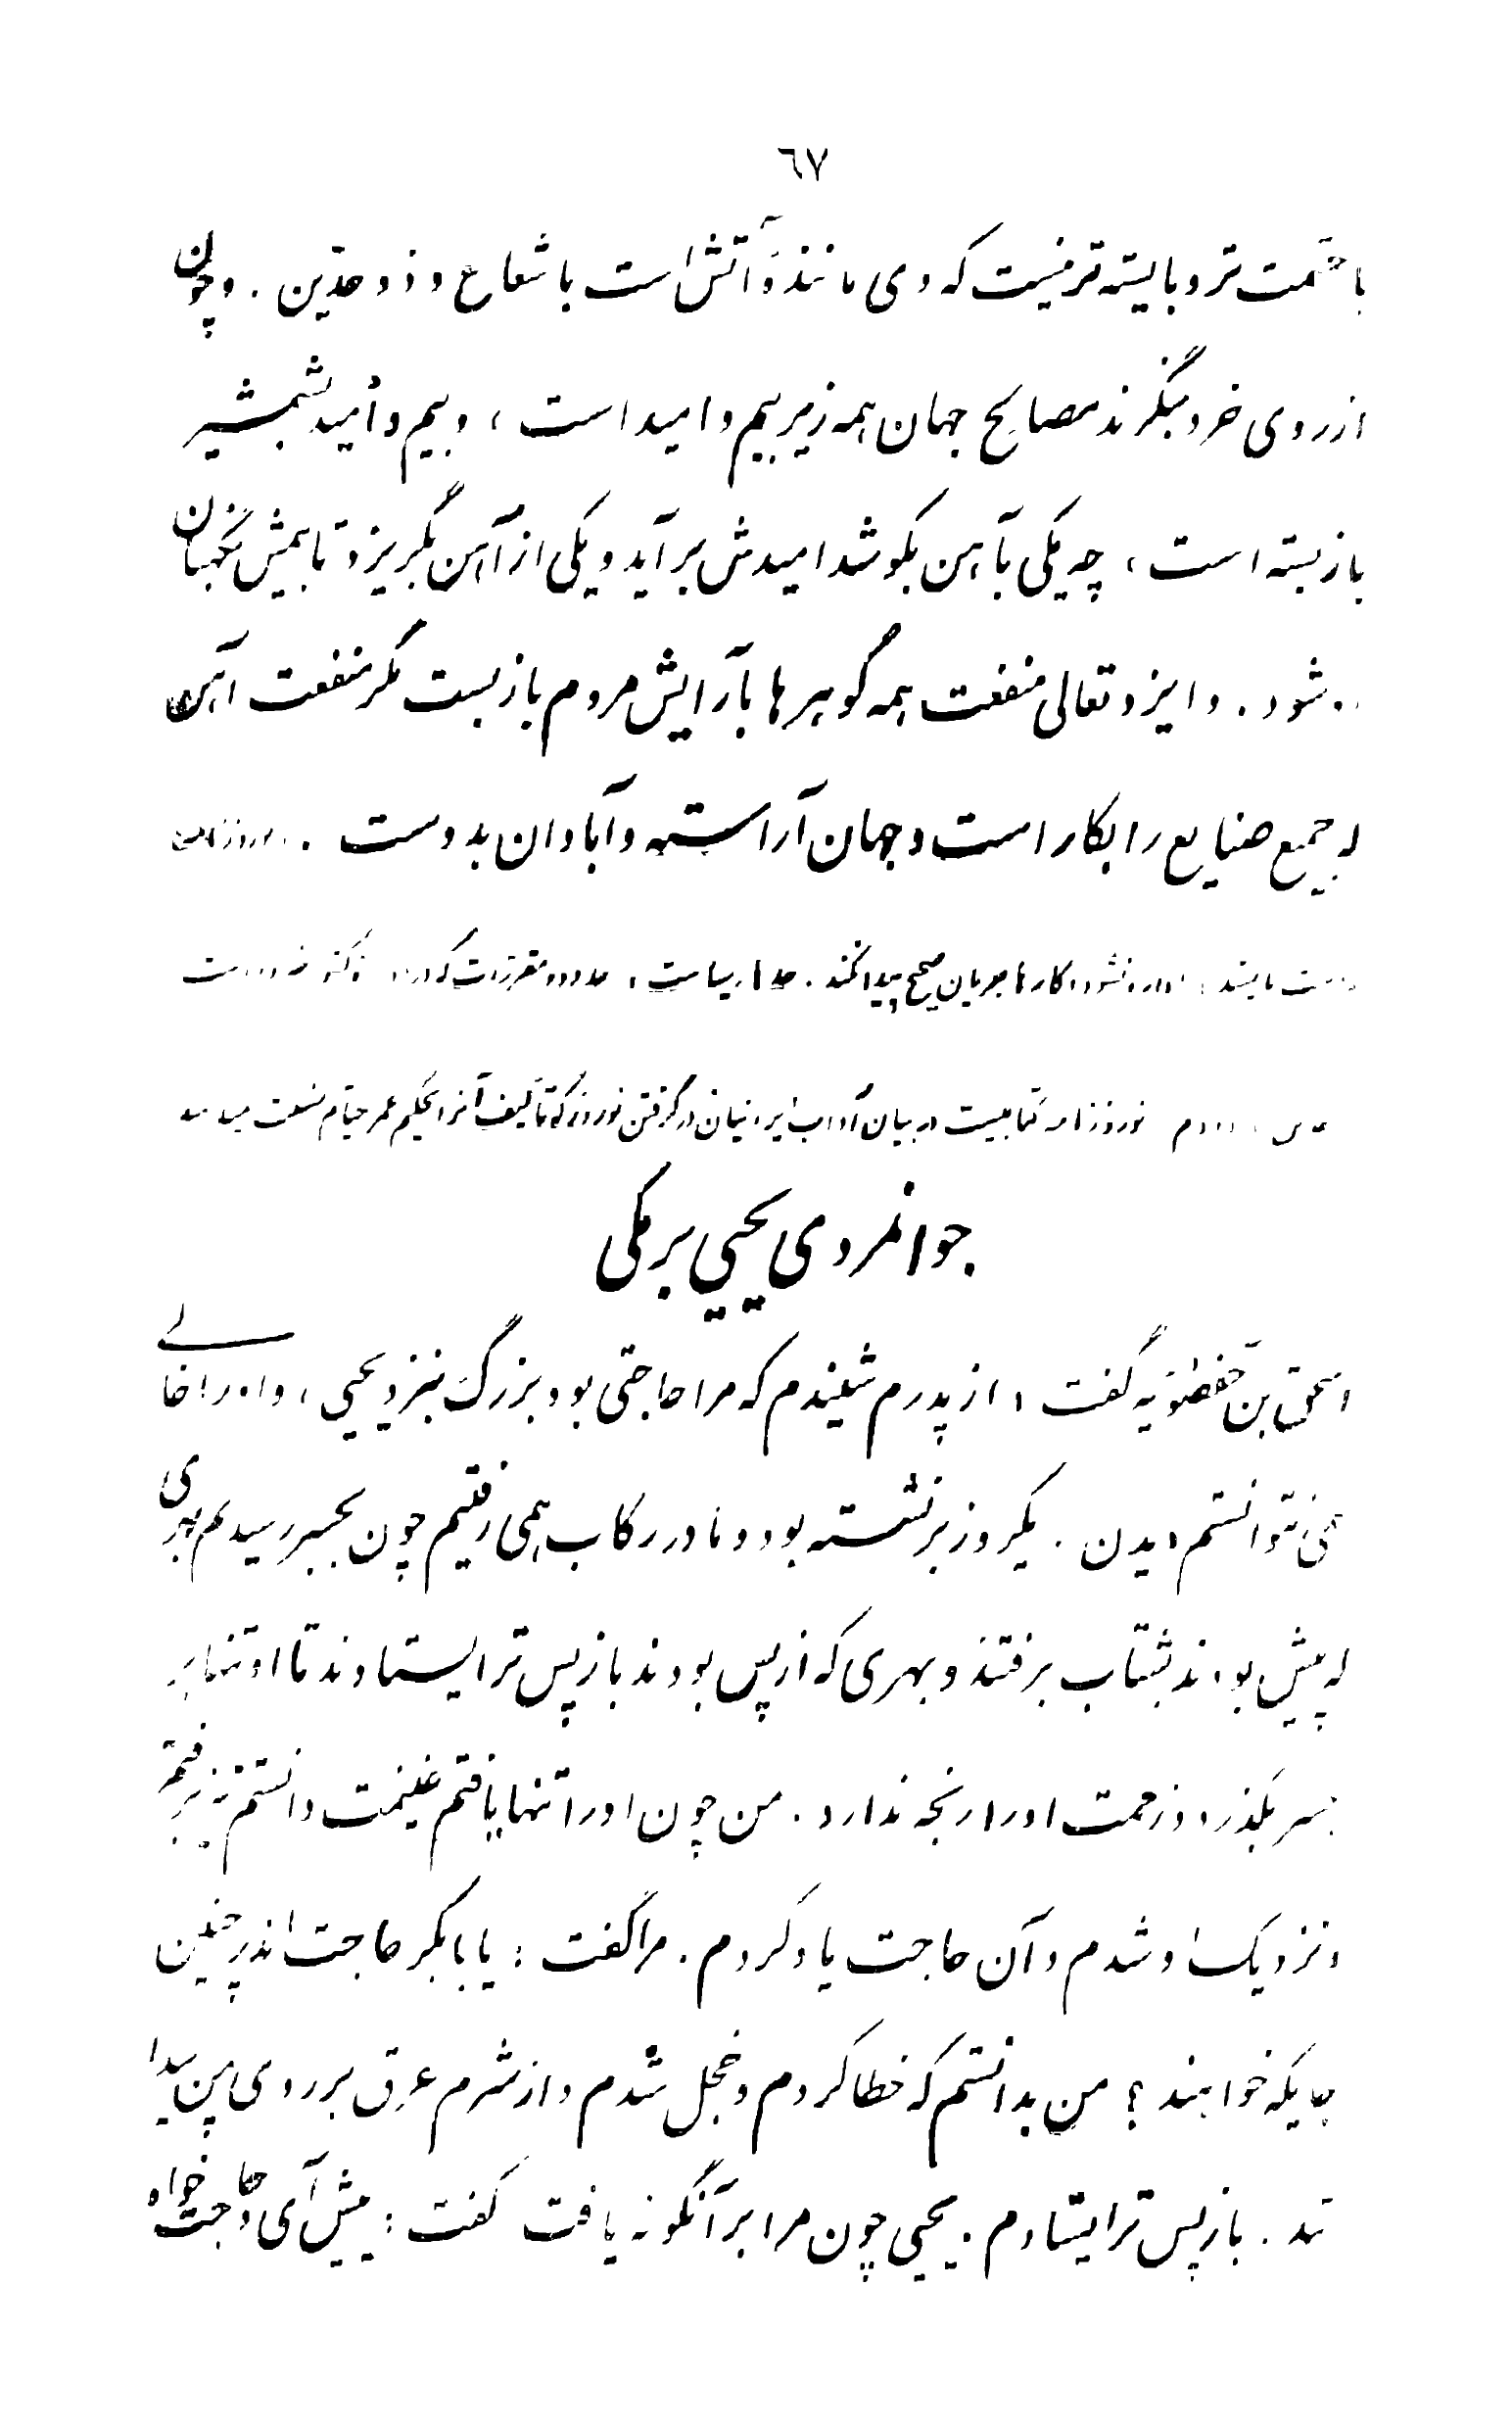 ٦٧
باحشمت تر و بایسته تر نیست که وی مانندهٔ آتش است با شعاع و ذوحدّین . و چون
از روی خرد بنگرند مصالح جهان همه زیر بیم و امید است ، و بیم و امید بشمشیر
باز بسته است ، چه یکی بآهن بکوشد امیدش برآید و یکی از آهن بگریزد تا بیمش نگهبان
شود . و ایزد تعالی منفعت همه گوهرها بآرایش مردم باز بست مگر منفعت آهن
که جمیع صنایع را بکار است و جهان آراسته و آبادان بدوست .
کارها جریان صحیح پیدا کند . مقررات که
نوروزنامه کتابیست در بیان آداب ایرانیان در گرفتن نوروز که تألیف آنرا بحکیم عمر خیّام نسبت میدهند
جوانمردی یحیی برمکی
اسحق بن گفت ، از پدرم شنیدم که مرا حاجتی بود بزرگ بنزد یحیی ، و او را خالی
نمی توانستم دیدن . یکروز برنشسته بود و ما در رکاب همی رفتیم چون بجسر رسیدیم بهری
که پیش بودند بشتاب برفتند و بهری که از پس بودند باز پس تر ایستادند تا او تنها بر
جسر بگذرد و زحمت او را رنجه ندارد . من چون او را تنها یافتم غنیمت دانستم تیز برفتم
و نزدیک او شدم و آن حاجت یاد کردم . مرا گفت : یا بابکر حاجت اندر چنین
جایگه خواهند ؟ من بدانستم که خطا کردم و خجل شدم و از شرم عرق بر روی من پیدا
شد . باز پس تر ایستادم . یحیی چون مرا بر آنگونه یافت گفت : پیش آی و حاجت خواه